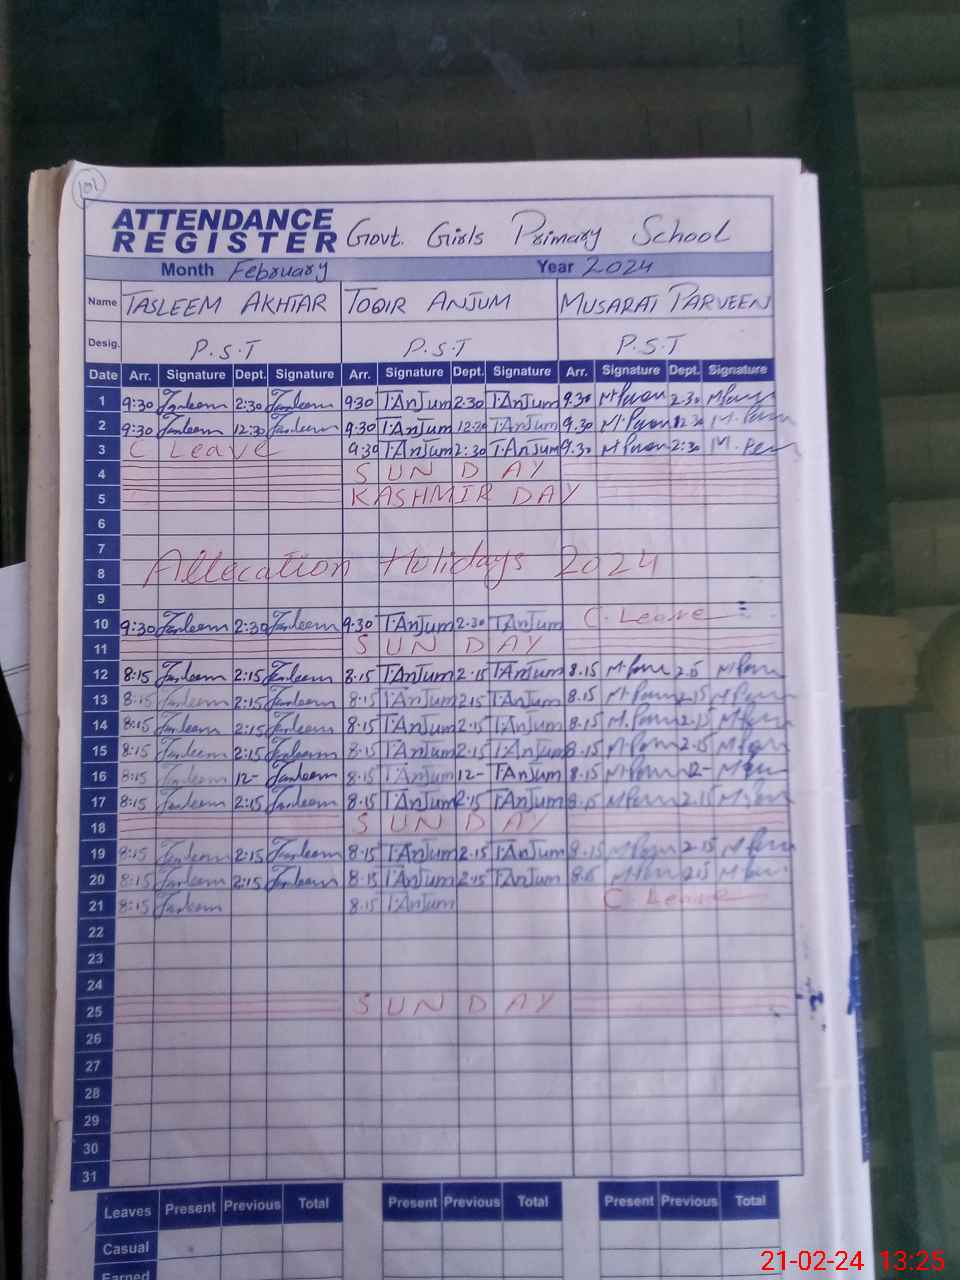 101
ATTENDANCE
REGISTER Govt. Girls Primary School
Month February Year 2024
Name TASLEEM AKHTAR TOQIR ANJUM MUSARAT PARVEEN
Desig. P.S.T P.S.T P.S.T
Date Arr. Signature Dept. Signature Arr. Signature Dept. Signature Arr. Signature Dept. Signature
1 9:30 Tasleem 2:30 Tasleem 9.30 T.AnJum 2.30 T.AnJum 9.30 M.Parveen 2.30
2 9:30 Tasleem 12:30 Tasleem 9.30 T.AnJum 12.30 T.AnJum 9.30 M.Parveen 12.30
3 C Leave 9.30 T.AnJum 2:30 T.AnJum 9.30 M Parveen 2:30
4 SUNDAY
5 KASHMIR DAY
6
7
8 Allecation Holidays 2024
9
10 9:30 Tasleem 2:30 Tasleem 9.30 T.AnJum 2.30 T.AnJum C. Leave
11 SUNDAY
12 8:15 Tasleem 2:15 Tasleem 8.15 T.AnJum 2.15 T.AnJum 8.15
13 8:15 Tasleem 2:15 Tasleem 8.15 T.AnJum 2.15 T.AnJum 8.15 2.15
14 8:15 Tasleem 2:15 Tasleem 8.15 T.AnJum 2.15 T.AnJum 8.15 2.15
15 8:15 Tasleem 2:15 Tasleem 8.15 T.AnJum 2.15 T.AnJum 8.15 2.15
16 8:15 Tasleem 12- Tasleem 8.15 T.AnJum 12- T.AnJum 8.15 12-
17 8:15 Tasleem 2:15 Tasleem 8.15 T.AnJum 2.15 T.AnJum 8.15 2.15
18 SUNDAY
19 8:15 Tasleem 2:15 Tasleem 8.15 T.AnJum 2.15 T.AnJum 8.15 2.15
20 8:15 Tasleem 2:15 Tasleem 8.15 T.AnJum 2.15 T.AnJum 2.15
21 8:15 Tasleem 8.15 T.AnJum C. Leave
22
23
24
25 SUNDAY
26
27
28
29
30
31
Leaves Present Previous Total Present Previous Total Present Previous Total
Casual
Earned
21-02-24 13:25